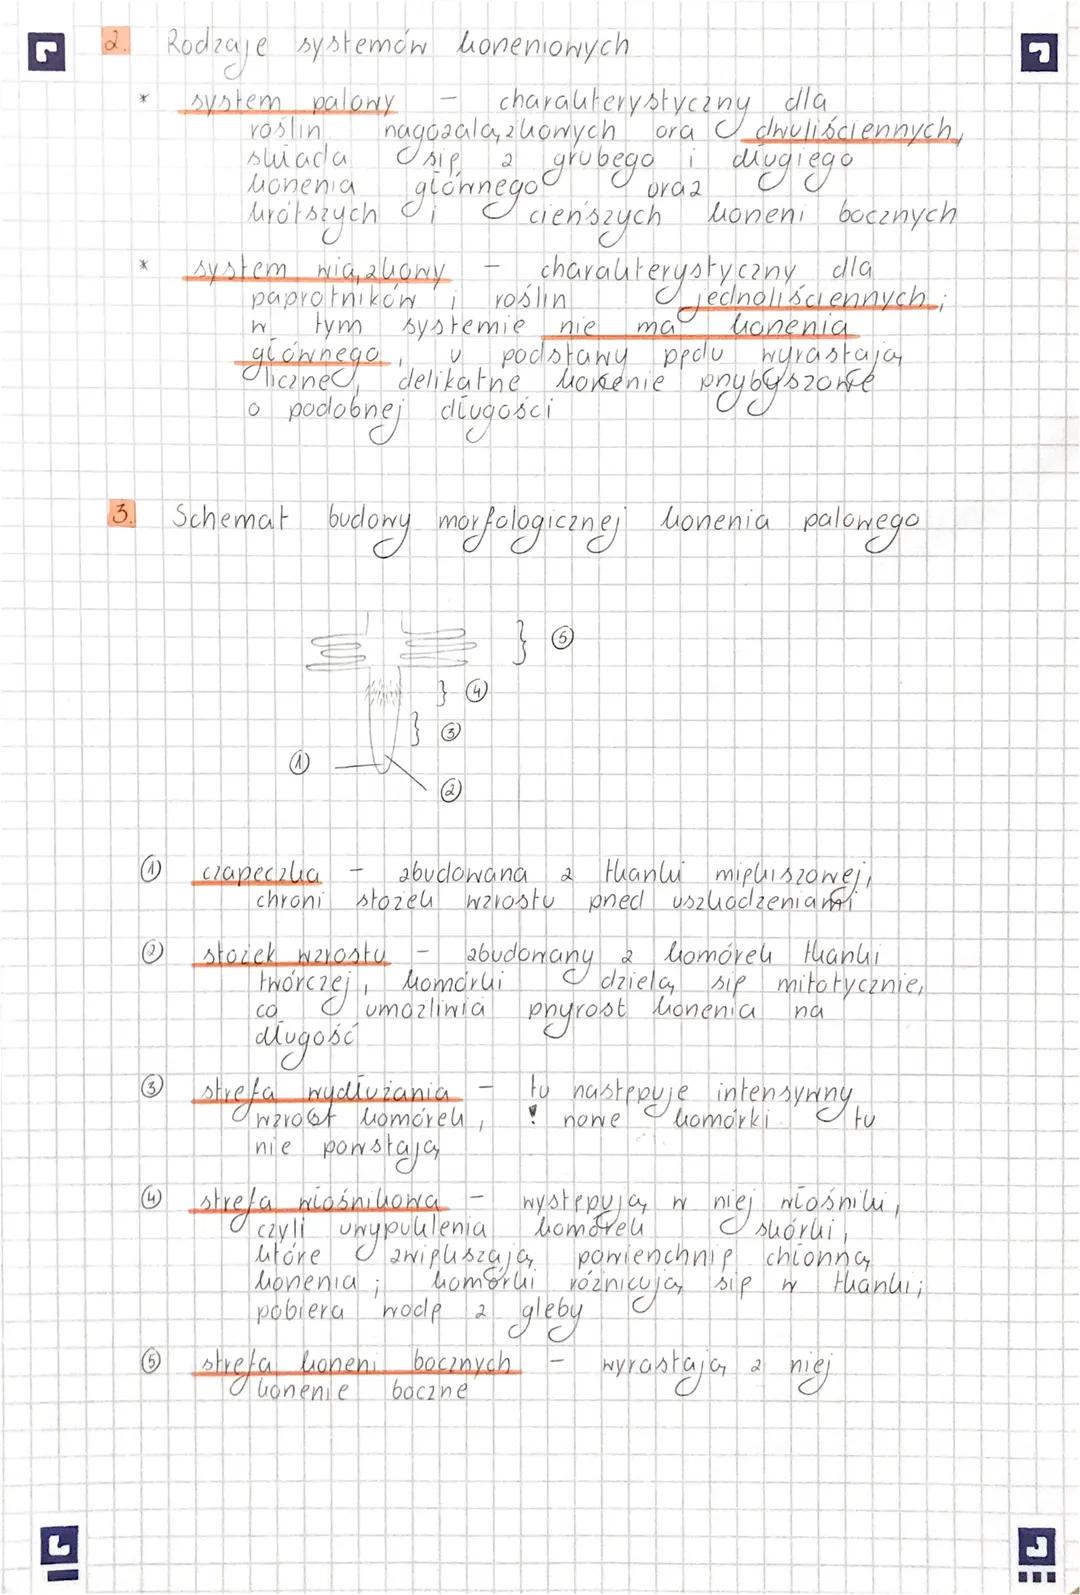 2. Rodzaje systemów korzeniowych
* system palowy - charakterystyczny dla
roślin nagozalążkowych ora dwuliściennych,
składa się z grubego i długiego
korzenia głównego oraz
krótszych i cieńszych korzeni bocznych
* system wiązkowy - charakterystyczny dla
paprotników i roślin jednoliściennych;
w tym systemie nie ma korzenia
głównego, u podstawy pędu wyrastają
liczne, delikatne korzenie przybyszowe
o podobnej długości
3. Schemat budowy morfologicznej korzenia palowego
} 5
} 4
} 3
1
2
1 czapeczka - zbudowana z tkanki miękiszowej,
chroni stożek wzrostu przed uszkodzeniami
2 stożek wzrostu - zbudowany z komórek tkanki
twórczej, komórki dzielą się mitotycznie,
co umożliwia przyrost korzenia na
długość
3 strefa wydłużania - tu następuje intensywny
wzrost komórek, ! nowe komórki tu
nie powstają
4 strefa włośnikowa - występują w niej włośniki,
czyli uwypuklenia komórek skórki,
które zwiększają powierzchnię chłonną
korzenia; komórki różnicują się w tkanki;
pobiera wodę z gleby
5 strefa korzeni bocznych - wyrastają z niej
korzenie boczne